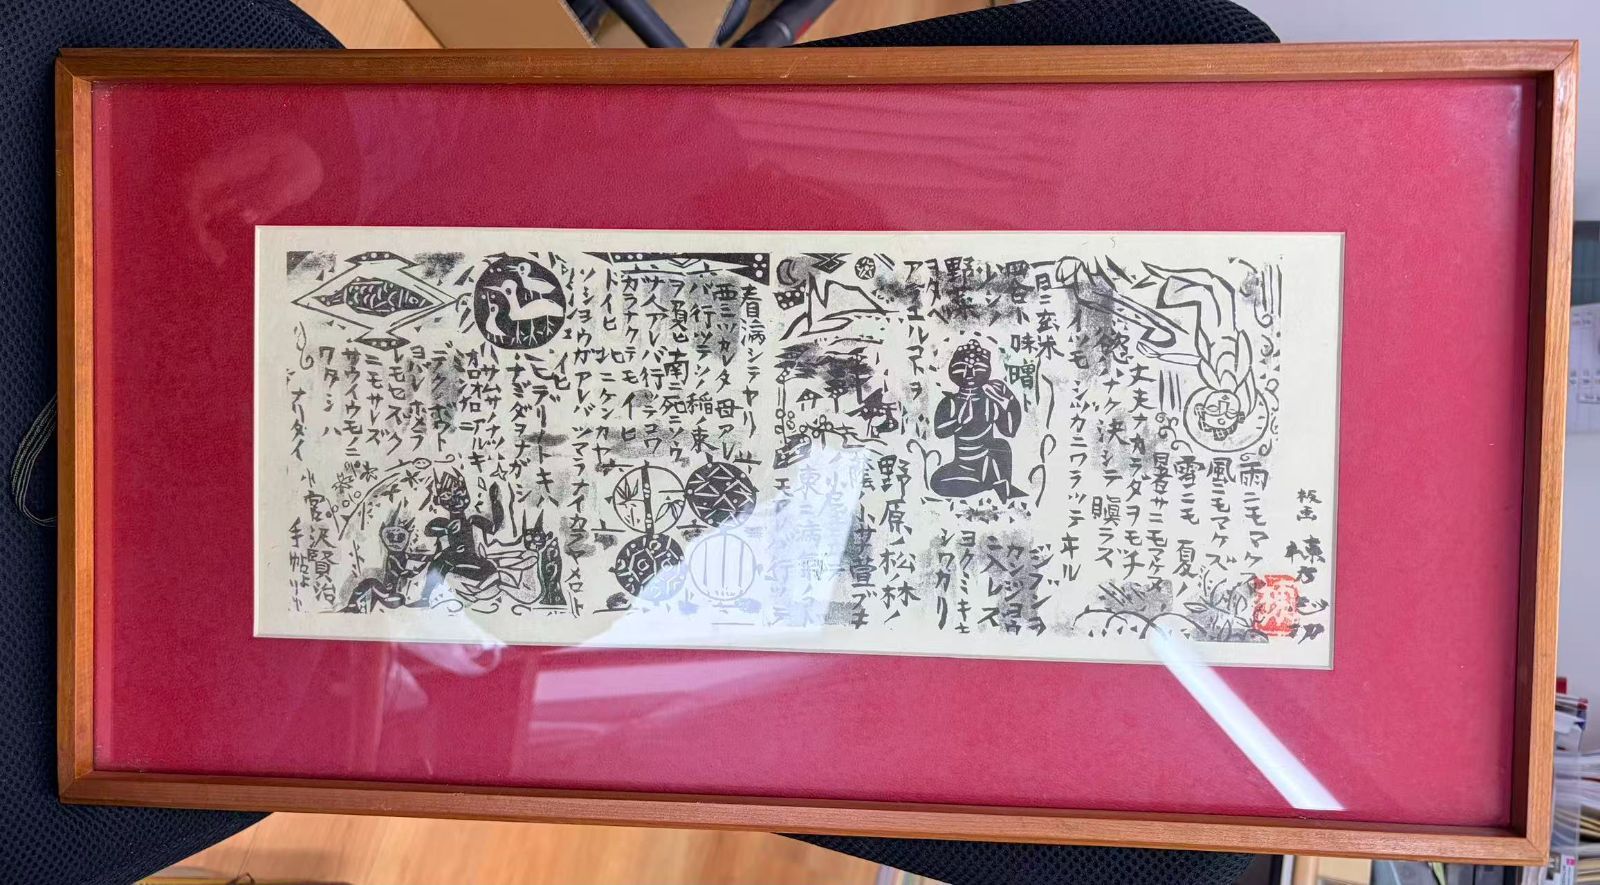 板画 棟方志功
雨ニモマケズ
風ニモマケズ
雪ニモ夏ノ
暑サニモマケヌ
丈夫ナカラダヲモチ
慾ハナク決シテ瞋ラズ
イツモシヅカニワラッテヰル
一日ニ玄米
四合ト味噌ト
少シノ
野菜
ヲタベ
アラユルコトヲ
ジブンヲ
カンジョウ
ニ入レズ
ヨクミキキ
シワカリ
野原ノ松林ノ
蔭ノ小サ萱ブキ
小屋ニ
東ニ病氣ノ
行ッテ
看病シテヤリ
西ニツカレタ母アレ
バ行ッテソノ稲ノ束
ヲ負ヒ南ニ死ニソウ
ナ人アレバ行ッテコワ
ガラナクテモイヒ
トイヒ北ニケンカヤ
ソショウガアレバツマラナイカラヤメロト
イヒ
ヒデリノトキハ
ナミダヲナガシ
サムサノナツハ
オロオロアルキ
ミンナニ
デクノボウト
ヨバレホメラ
レモセズク
ニモサレズ
サウイウモノニ
ワタシハ
ナリタイ
宮沢賢治
手帖より